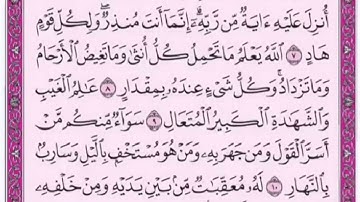 أُنزِلَ عَلَيْهِ ءَايَةٌ مِّن رَّبِّهِۦٓ ۗ إِنَّمَآ أَنتَ مُنذِرٌ ۖ وَلِكُلِّ قَوْمٍ
هَادٍ ٧ ٱللَّهُ يَعْلَمُ مَا تَحْمِلُ كُلُّ أُنثَىٰ وَمَا تَغِيضُ ٱلْأَرْحَامُ
وَمَا تَزْدَادُ ۖ وَكُلُّ شَىْءٍ عِندَهُۥ بِمِقْدَارٍ ٨ عَٰلِمُ ٱلْغَيْبِ
وَٱلشَّهَٰدَةِ ٱلْكَبِيرُ ٱلْمُتَعَالِ ٩ سَوَآءٌ مِّنكُم مَّنْ
أَسَرَّ ٱلْقَوْلَ وَمَن جَهَرَ بِهِۦ وَمَنْ هُوَ مُسْتَخْفٍۭ بِٱلَّيْلِ وَسَارِبٌۢ
بِٱلنَّهَارِ ١٠ لَهُۥ مُعَقِّبَٰتٌ مِّنۢ بَيْنِ يَدَيْهِ وَمِنْ خَلْفِهِۦ